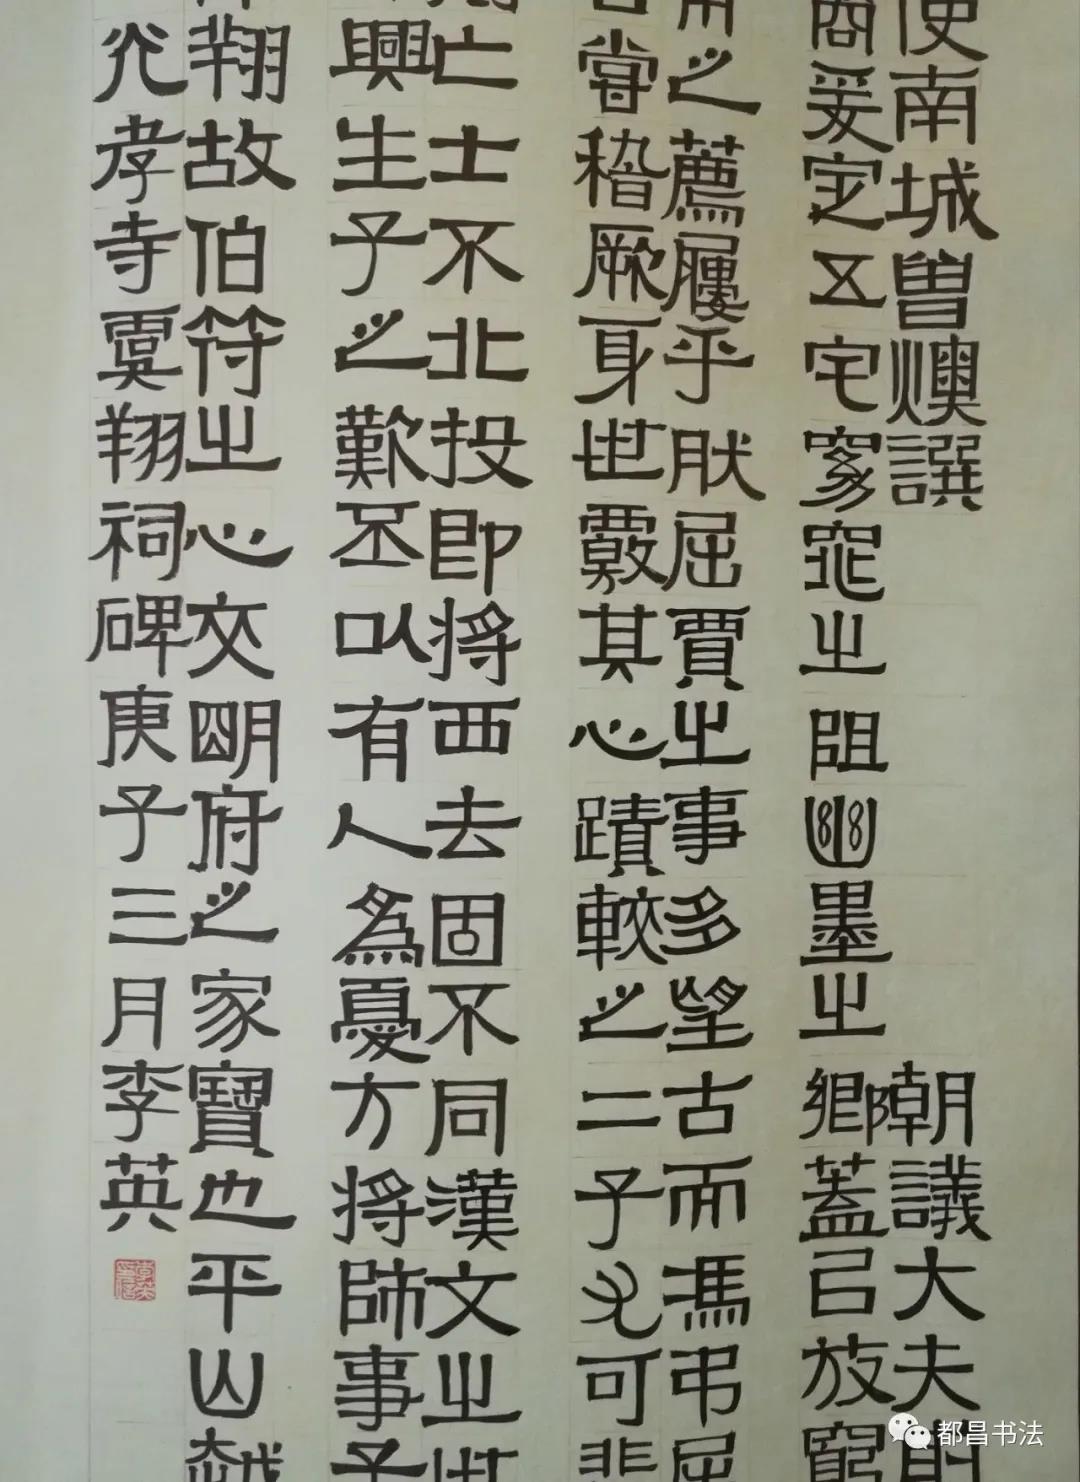 使南城曾燠譔 朝議大夫
商爰定五宅㝛窕之阻幽墨之鄉蓋已放窮
用之薦屨乎肰屈賈之事多望古而馮弔屈
嘗稽厥身世覈其心蹟較之二子尤可非
亡士不北投即將西去固不同漢文之世
興生子之歎丕以有人為憂方將師事子
翔故伯符之心交明府之家寶也平山越
光孝寺虞翔祠碑庚子三月李英
都昌书法